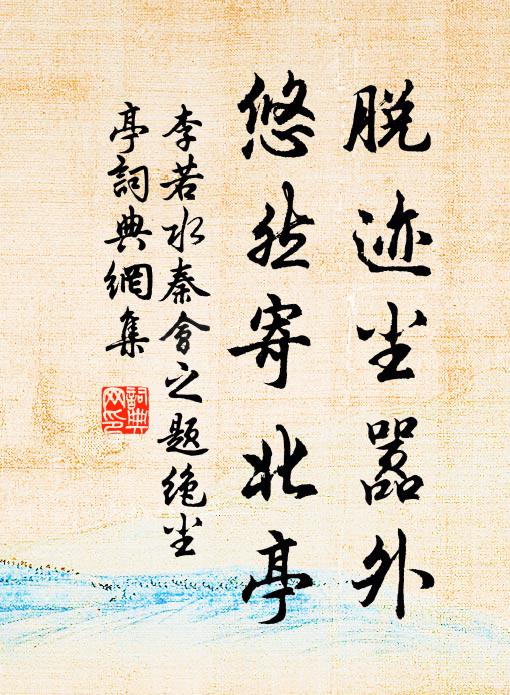 脱迹尘嚣外
悠然寄北亭
李若水秦會之题绝尘
亭詞典網集
詞典
网印